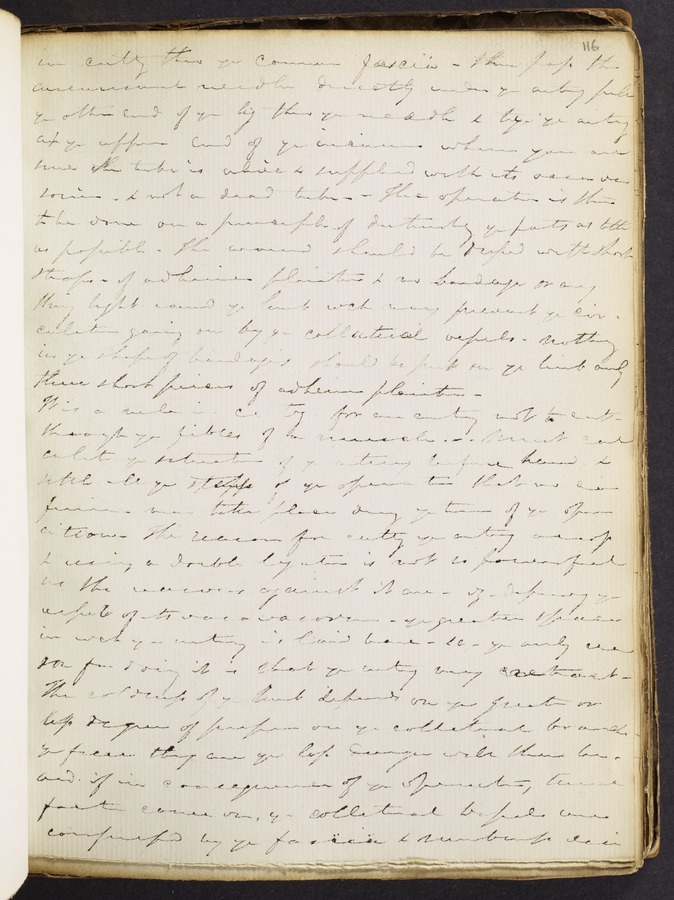 116
in cutting thro ye common fascia - then pass the
aneurismal needle directly under ye artery pull
ye other end of ye lig thro ye needle & tye ye artery
at ye upper end of ye incision where you are
sure the tube is alive & supplied with its vasa va
sorum - & not a dead tube - The operation is then
to be done on a principle of disturbing ye parts as little
as possible - The wound should be drest with short
straps of adhesive plaister & no bandage or any
thing tight round ye limb wch may prevent ye cir-
culation going on by ye collateral vessels - nothing
in ye shape of bandages should be put on ye limb only
three short pieces of adhesive plaister -
It is a rule in cutting for an artery not to cut
through ye fibres of a muscle - must cal
culate ye situation of ye artery before hand &
settle all ye steps of ye operation that no con
fusion may take place during ye time of ye oper
ation - The reason for cutting ye artery across
& using a double ligature is not so powerful
as the reasons against it are - viz - depriving ye
vessel of its vasa vasorum - ye greater space
in wch ye artery is laid bare - &c - ye only rea
son for doing it is that ye artery may contract -
The coldness of ye limb depends on ye great or
less degree of pressure on ye collateral branches
ye freer they are ye less danger will there be -
and if in consequence of ye operation, tume
faction comes on, ye collateral vessels are
compressed by ye fascia & numbness